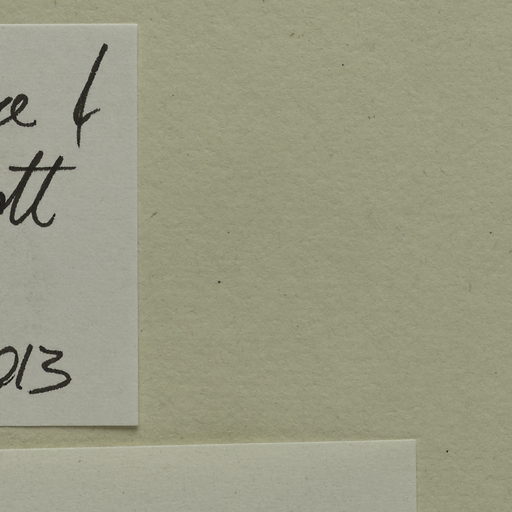 ce &
ott
013